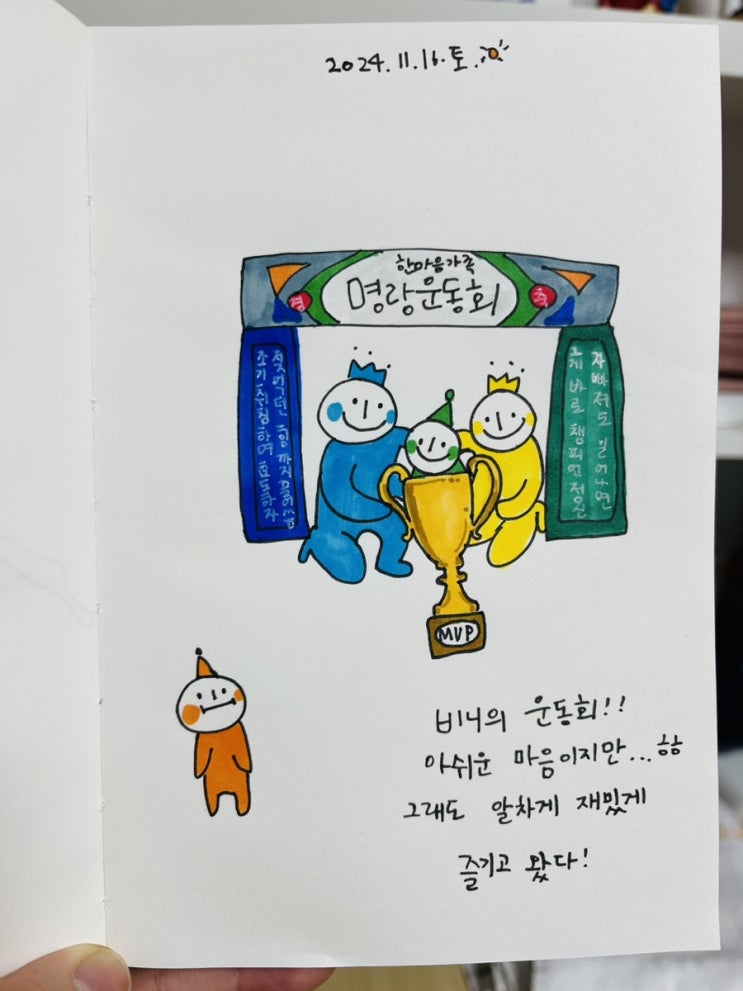 2024.11.16.토.
한마음가족
명랑운동회
경
축
젖먹던 힘까지
조기취침하여 효도하자
자빠져도 일어나면
그게 바로 챔피언정신
MVP
비니의 운동회!!
아쉬운 마음이지만... 핳핳
그래도 알차게 재밌게
즐기고 왔다!